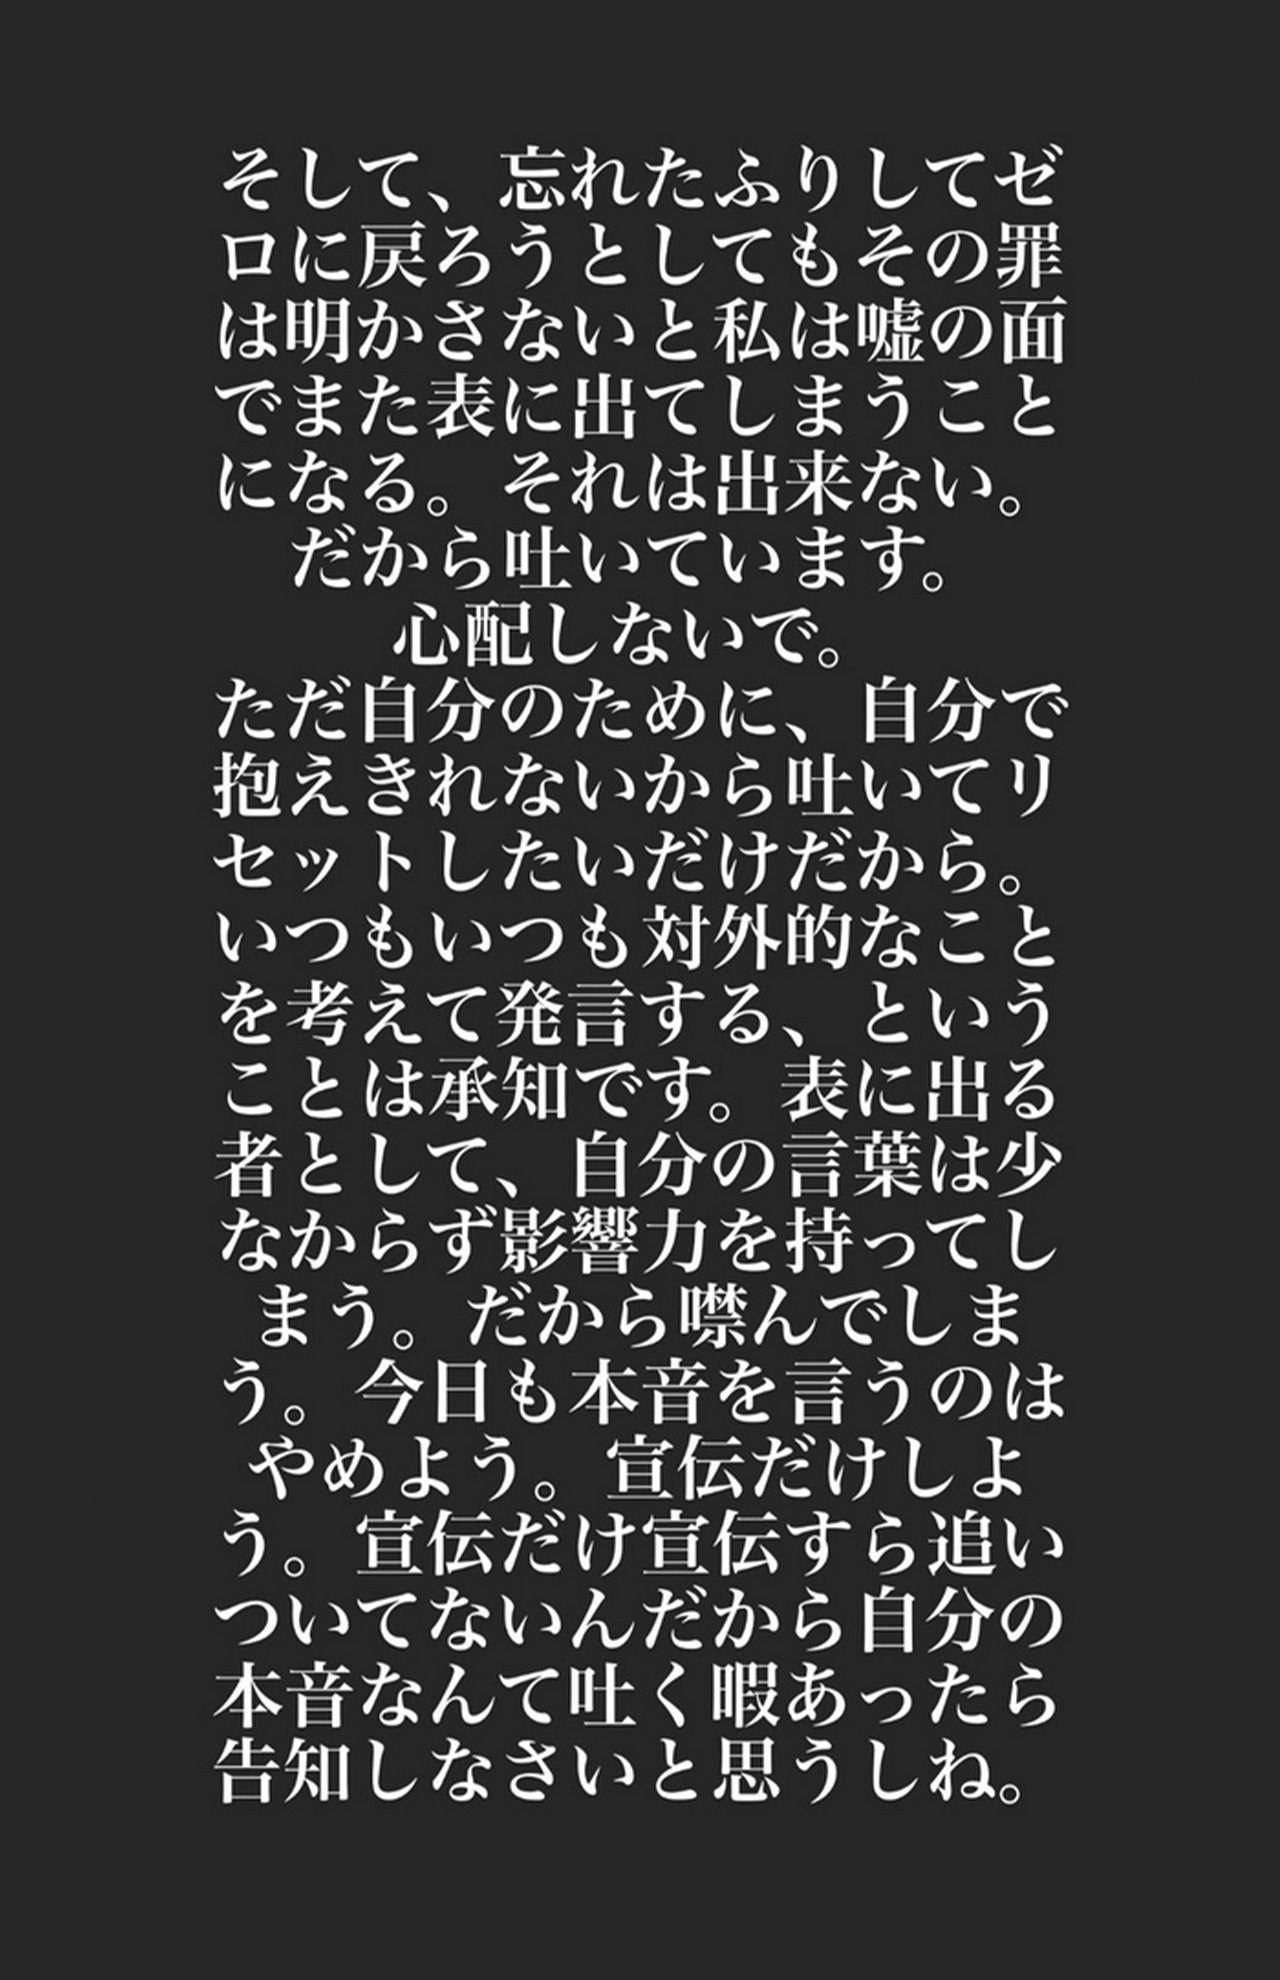 そして、忘れたふりしてゼ
ロに戻ろうとしてもその罪
は明かさないと私は嘘の面
でまた表に出てしまうこと
になる。それは出来ない。
だから吐いています。
心配しないで。
ただ自分のために、自分で
抱えきれないから吐いてリ
セットしたいだけだから。
いつもいつも対外的なこと
を考えて発言する、という
ことは承知です。表に出る
者として、自分の言葉は少
なからず影響力を持ってし
まう。だから噤んでしま
う。今日も本音を言うのは
やめよう。宣伝だけしよ
う。宣伝だけ宣伝すら追い
ついてないんだから自分の
本音なんて吐く暇あったら
告知しなさいと思うしね。